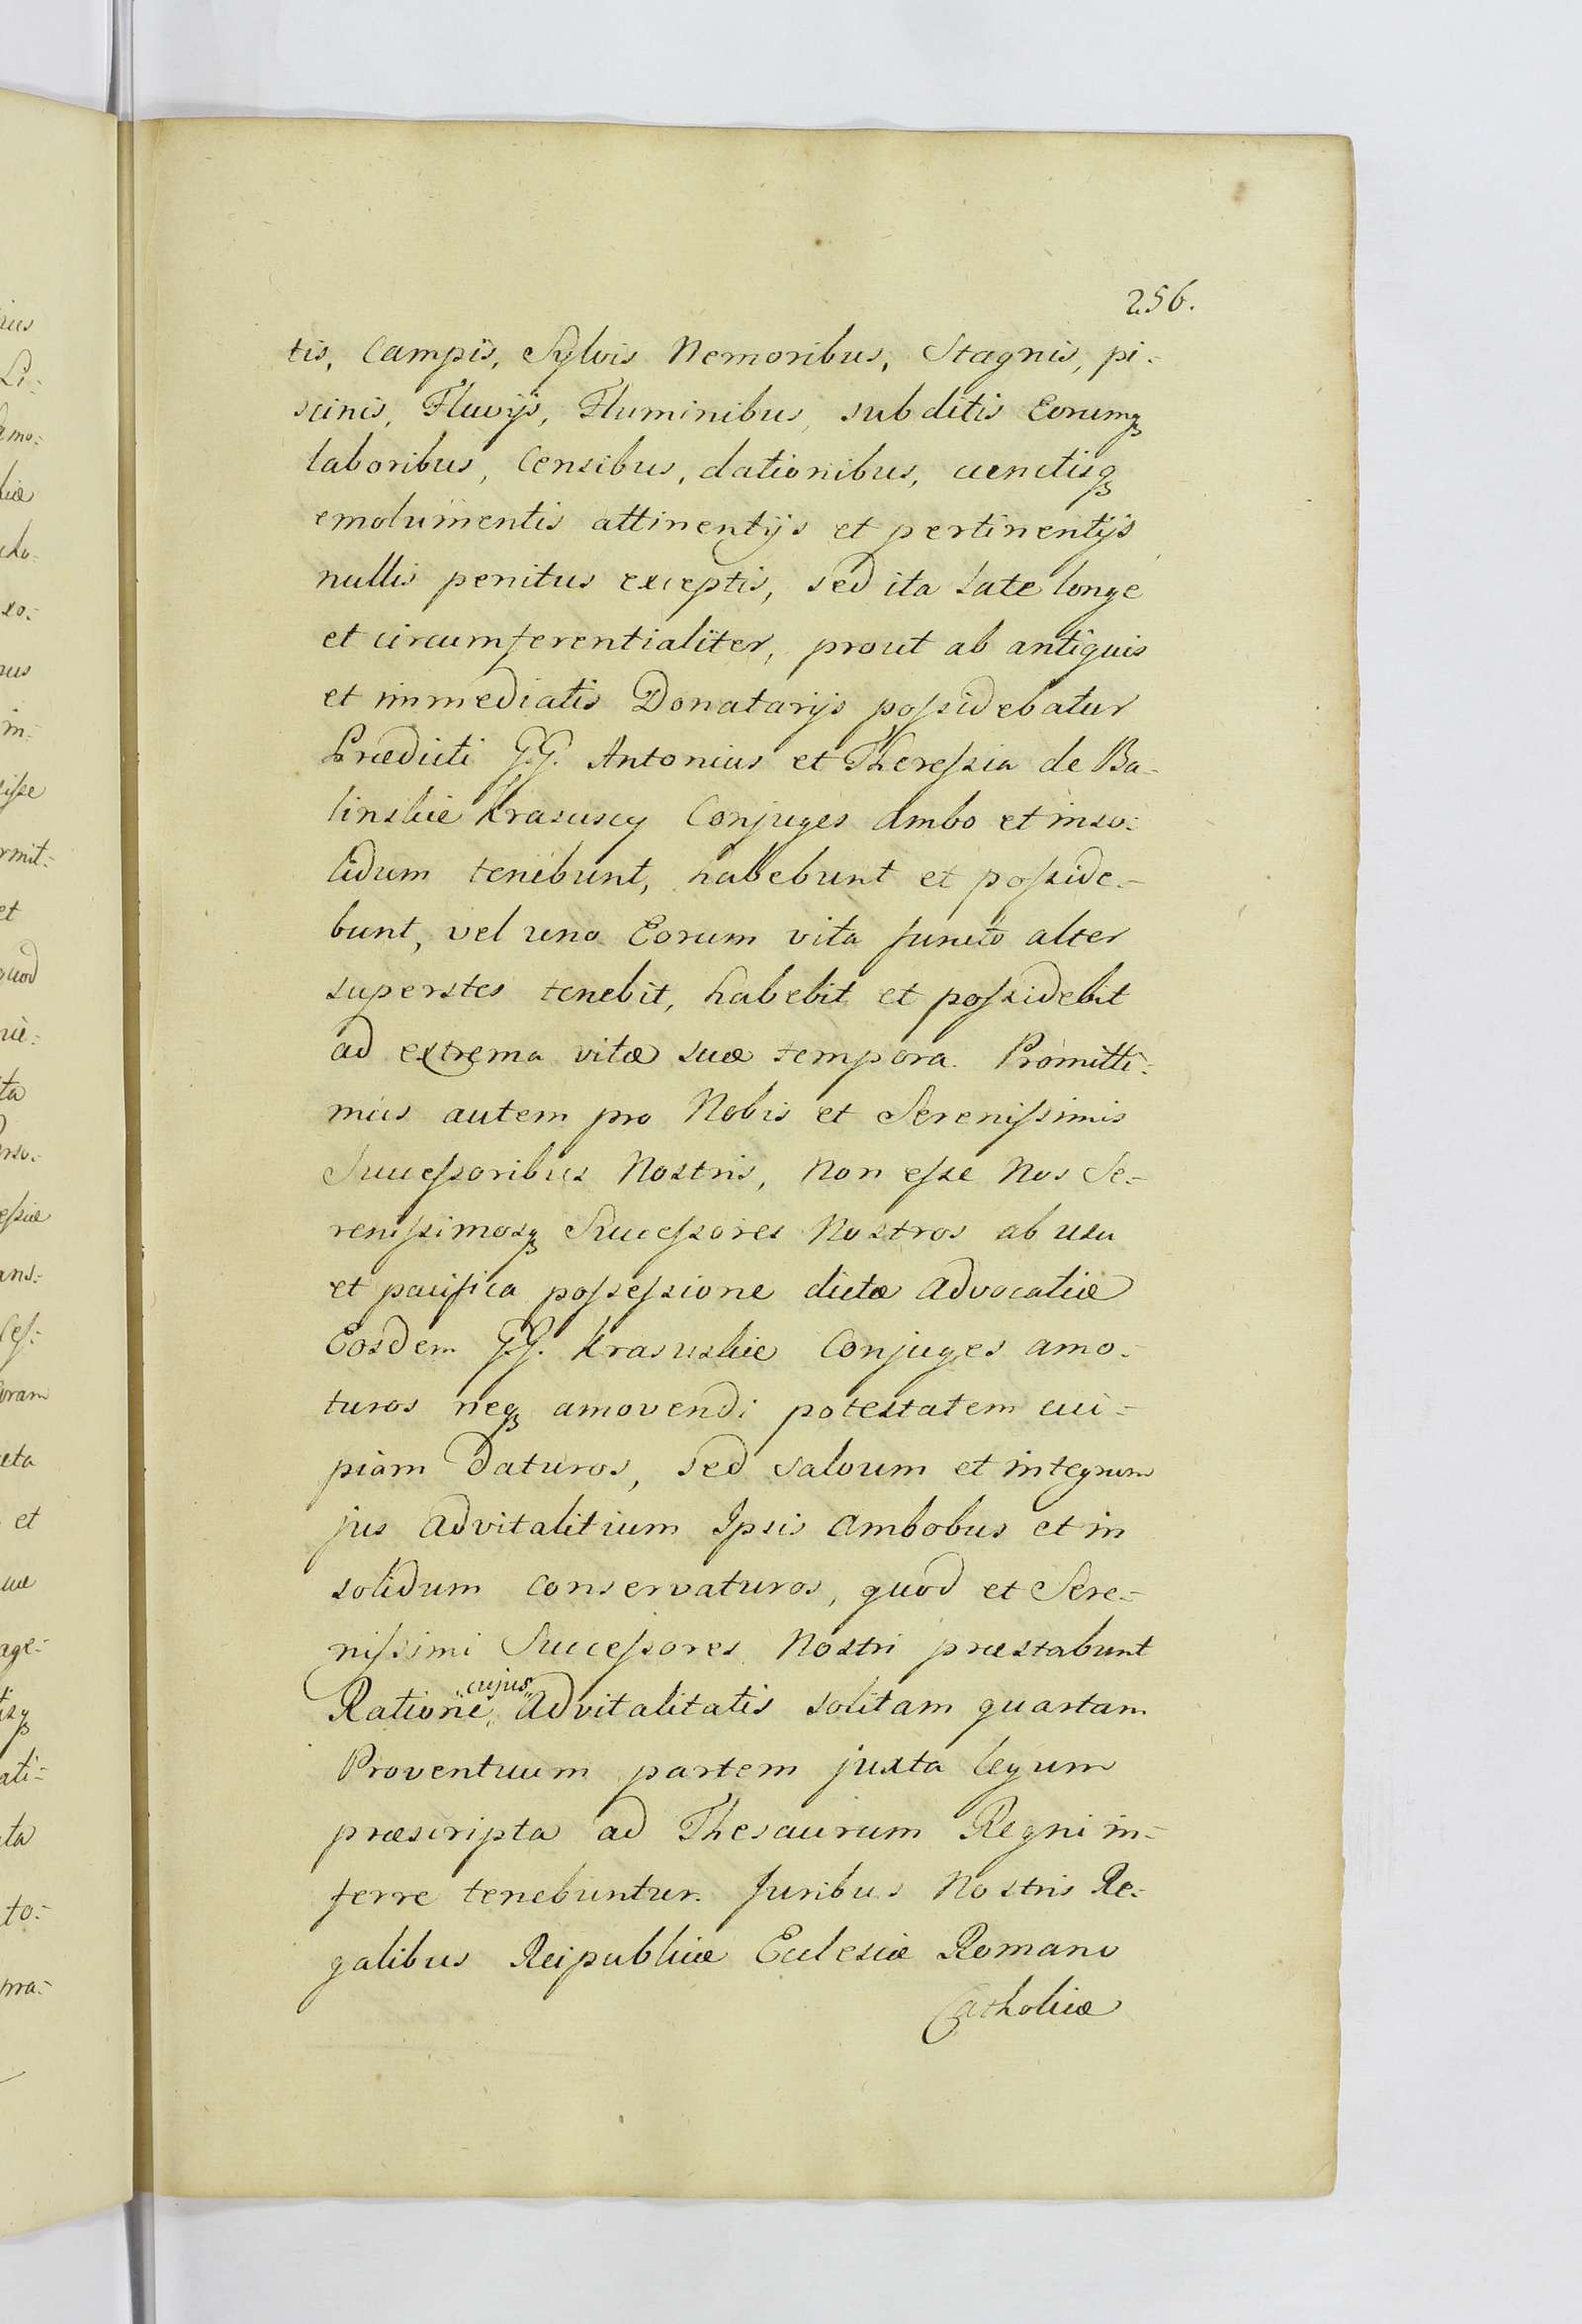 256.
tis, Campis, Sylvis Nemoribus, Stagnis, pi-
scinis, Fluvijs, Fluminibus, subditis Eorumq
laboribus, Censibus, dationibus, cunctisq
emolumentis attinentijs et pertinentijs
nullis penitus exceptis, sed ita late longe
et circumferentialiter, prout ab antiquis
et immediatis Donatarijs possidebatur
Prædicti G.G. Antonius et Theressia de Ba-
linskie Krasuscy Conjuges ambo et inso-
lidum tenebunt, habebunt et posside-
bunt, vel uno Eorum vita functo alter
superstes tenebit, habebit et possidebit
ad extrema vitæ suæ tempora. Promitti-
mus autem pro Nobis et Serenissimis
Successoribus Nostris, Non esse Nos Se-
renissimosq Successores Nostros ab usu
et pacifica possessione dictæ Advocatiæ
Eosdem G.G. Krasuskie Conjuges amo-
turos neq amovendi potestatem cui-
piam daturos, sed salvum et integrum
jus advitalitium Ipsis ambobus et in
solidum conservaturos, quod et Sere-
nissimi Successores Nostri præstabunt
Ratione cujus Advitalitatis solitam quartam
Proventuum partem juxta legum
præscripta ad Thesaurum Regni in-
ferre tenebuntur. Juribus Nostris Re-
galibus Reipublicæ Ecclesiæ Romano
Catholicæ